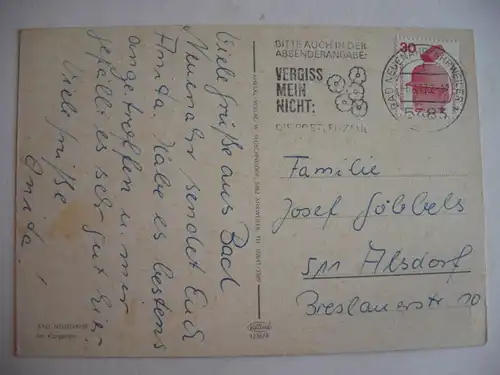 Viele Grüße aus Bad
Neuenahr sendet Euch
Anida. Habe es bestens
angetroffen u. mir
gefällt es sehr gut hier.
Viele Grüße
Anida!
BAD NEUENAHR
Im Kurgarten
BITTE AUCH IN DER
ABSENDERANGABE:
VERGISS
MEIN
NICHT:
DIE POSTLEITZAHL
30
BAD NEUENAHR-AHRWEILER
5483
Familie
Josef Göbbels
511 Alsdorf
Breslauerstr 10